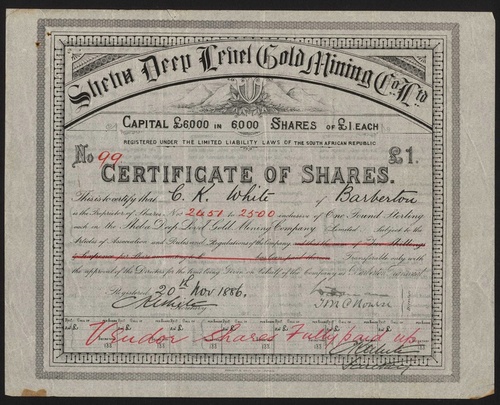 Sheba Deep Level Gold Mining Co. Ltd
CAPITAL £6000 IN 6000 SHARES OF £1 EACH
REGISTERED UNDER THE LIMITED LIABILITY LAWS OF THE SOUTH AFRICAN REPUBLIC
No 99 £1.
CERTIFICATE OF SHARES.
This is to certify that C. K. White of Barberton
is the Proprietor of Shares Nos 2451 to 2500 inclusive of One Pound Sterling
each in the Sheba Deep Level Gold Mining Company Limited Subject to the
Articles of Association and Rules and Regulations of the Company
Transferable only with
the approval of the Directors for the time being Given on behalf of the Company at
Registered 20th Nov 1886.
Vendor Shares Fully paid up
Secretary